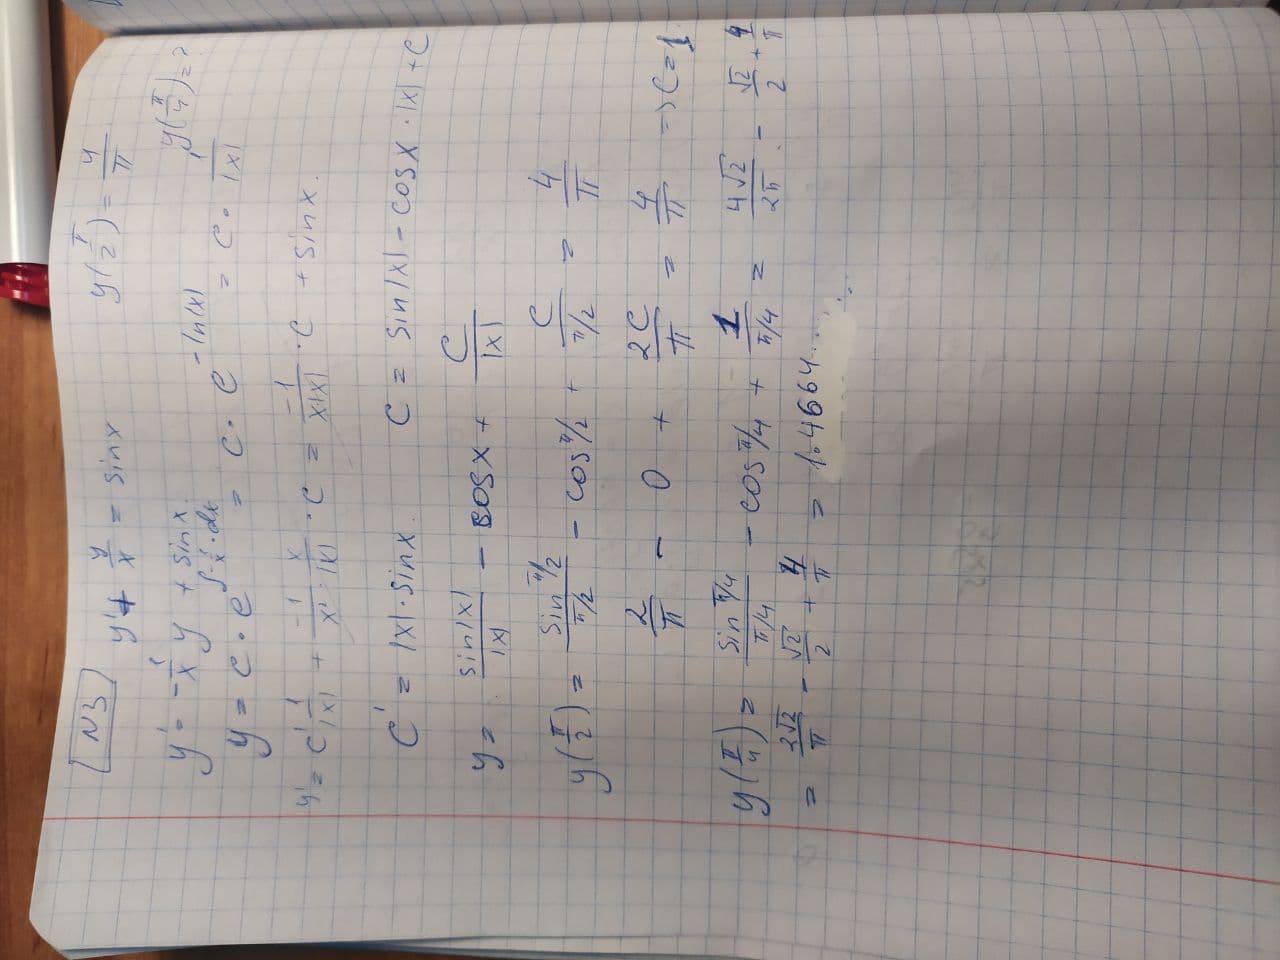 N3
y' + y/x = sinx    y(π/2) = 4/π
y' = -1/x y + sinx.    y(π/4) = ?
y = c · e^(∫-1/x · dx) = c · e^(-ln|x|) = c · 1/|x|
y' = c' 1/|x| + -1/x² · x/|x| · c = -1/(x|x|) · c + sinx.
C' = |x| · sinx.    C = sin|x| - cosx · |x| + C
y = sin|x|/|x| - cosx + C/|x|
y(π/2) = (sin π/2)/(π/2) - cos π/2 + C/(π/2) = 4/π
2/π - 0 + 2C/π = 4/π => C = 1
y(π/4) = (sin π/4)/(π/4) - cos π/4 + 1/(π/4) = 4√2/2π - √2/2 + 4/π
= 2√2/π - √2/2 + 4/π = 1.4664...